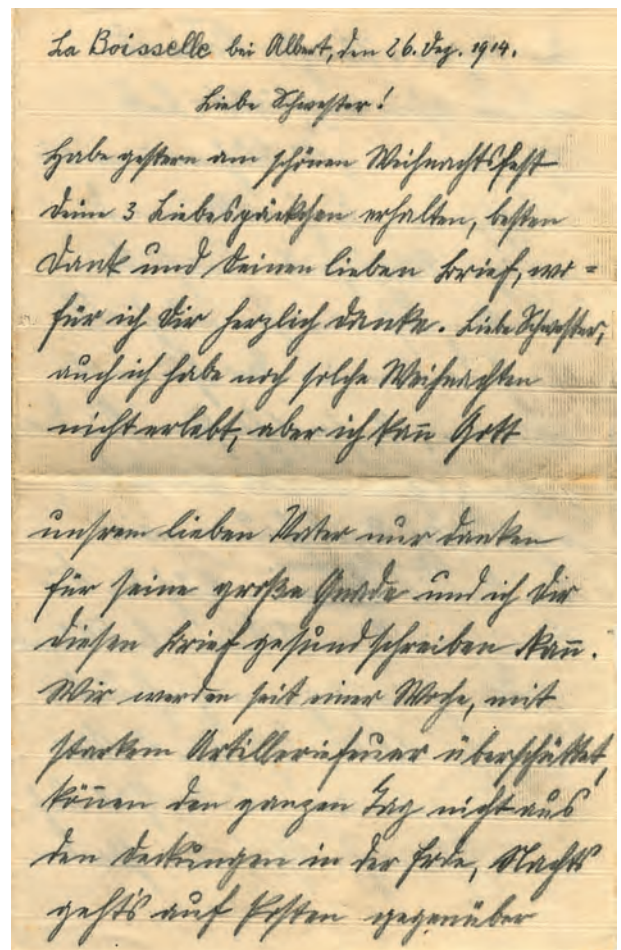 La Boisselle bei Albert, den 26. Dez. 1914.
Liebe Schwester!
Habe gestern am schönen Weihnachtsfest
deine 3 Liebespäckchen erhalten, besten
Dank und deinen lieben Brief, wo=
für ich dir herzlich danke. Liebe Schwester,
auch ich habe noch solche Weihnachten
nicht erlebt, aber ich kan̅ Gott
unsrem lieben Vater nur danken
für seine große Gnade und ich dir
diesen Brief gesund schreiben kan̅.
Wir werden seit einer Woche, mit
starkem Artilleriefeuer überschüttet,
kön̅en den ganzen Tag nicht aus
den Deckungen in der Erde, Nachts
geht's auf Posten gegenüber